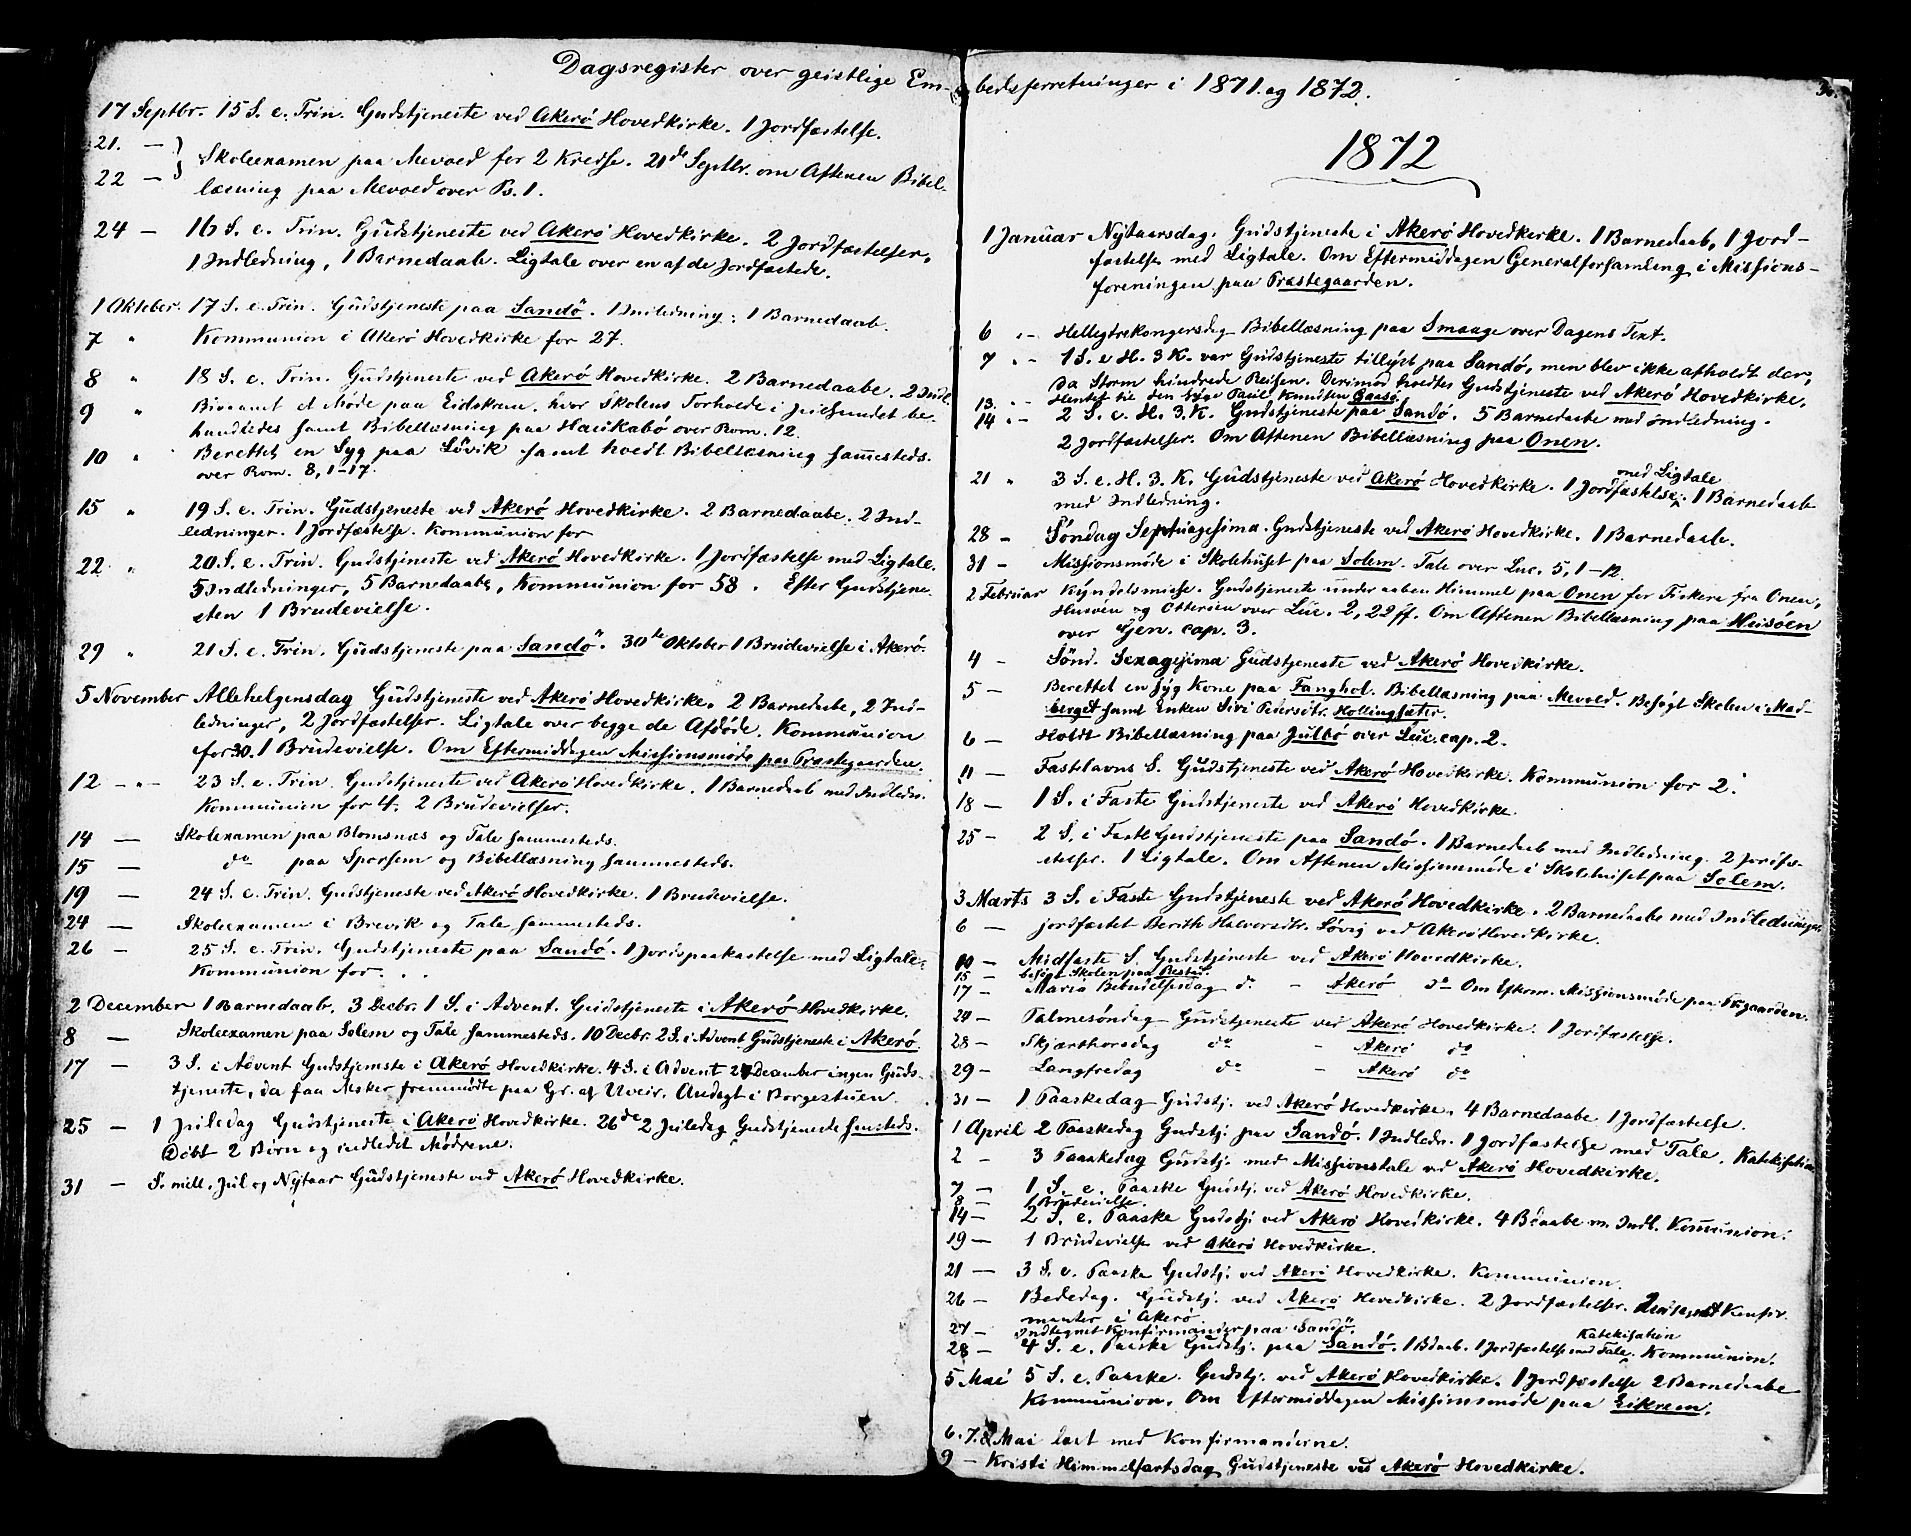 Dagsregister over geistlige Em-
17 Septbr. 15 S. e. Trin. Gudstjeneste ved Akerö Hovedkirke. 1 Jordfæstelse.
21. — } Skoleexamen paa Mevold for 2 Kredse. 21de Septbr. om Aftenen Bibel-
22 — læsning paa Mevold over Ps. 1.
24 — 16 S. e. Trin. Gudstjeneste ved Akerö Hovedkirke. 2 Jordfæstelser,
1 Indledning, 1 Barnedaab. Ligtale over en af de Jordfæstede.
1 Oktober. 17 S. e. Trin. Gudstjeneste paa Sandö. 1 Indledning, 1 Barnedaab.
7 " Kommunion i Akerö Hovedkirke for 27.
8 " 18 S. e. Trin. Gudstjeneste ved Akerö Hovedkirke. 2 Barnedaabe. 2 Indl.
9 " Bivaant et Möde paa Eidskrem, hvor Skolens Forholde i Julsundet be-
handledes samt Bibellæsning paa Hauskabö over Rom. 12.
10 " Berettet en Syg paa Lövik samt holdt Bibellæsning sammesteds.
over Rom. 8, 1-17.
15 " 19 S. e. Trin. Gudstjeneste ved Akerö Hovedkirke. 2 Barnedaabe. 2 Ind-
ledninger. 1 Jordfæstelse. Kommunion for
22 " 20 S. e. Trin. Gudstjeneste ved Akerö Hovedkirke. 1 Jordfæstelse med Ligtale.
5 Indledninger, 5 Barnedaabe, Kommunion for 58. Efter Gudstjene-
sten 1 Brudevielse.
29 " 21 S. e. Trin. Gudstjeneste paa Sandö. 30te Oktober 1 Brudevielse i Akerö.
5 November Allehelgensdag Gudstjeneste ved Akerö Hovedkirke. 2 Barnedaabe, 2 Ind-
ledninger, 2 Jordfæstelser. Ligtale over begge de Afdöde. Kommunion
for 30. 1 Brudevielse. Om Eftermiddagen Missionsmöde paa Præstegaarden.
12 —"— 23 S. e. Trin. Gudstjeneste ved Akerö Hovedkirke. 1 Barnedaab med Indledn.
Kommunion for 4. 2 Brudevielser.
14 — Skolexamen paa Blomsnæs og Tale sammesteds.
15 — do paa Sporsem og Bibellæsning sammesteds.
19 — 24 S. e. Trin. Gudstjeneste ved Akerö Hovedkirke. 1 Brudevielse.
24 — Skoleexamen i Brevik og Tale sammesteds.
26 — 25 S. e. Trin. Gudstjeneste paa Sandö. 1 Jordspaakastelse med Ligtale.
Kommunion for. . .
2 December 1 Barnedaab. 3 Decbr. 1 S. i Advent. Gudstjeneste i Akerö Hovedkirke.
8 — Skoleexamen paa Solem og Tale sammesteds. 10 Decbr. 2 S. i Advent Gudstjeneste i Akerö.
17 — 3 S. i Advent Gudstjeneste i Akerö Hovedkirke. 4 S. i Advent 24 December ingen Guds-
tjeneste, da faa Mskr fremmödte paa Gr. af Uveir. Andagt i Borgestuen.
25 — 1 Juledag Gudstjeneste i Akerö Hovedkirke. 26de 2 Juledag Gudstjeneste sMsteds.
Döbt 2 Börn og indledet Mödrene.
31 — S. mell. Jul og Nytaar Gudstjeneste ved Akerö Hovedkirke.
bedsforretninger i 1871 og 1872.
1872
1 Januar Nytaarsdag. Gudstjeneste i Akerö Hovedkirke. 1 Barnedaab, 1 Jord-
fæstelse med Ligtale. Om Eftermiddagen Generalforsamling i Missions-
foreningen paa Præstegaarden.
6 "— Helligtrekongersdag Bibellæsning paa Smaage over Dagens Text.
7 "— 1 S. e H. 3 K. var Gudstjeneste tillyst paa Sandö, men blev ikke afholdt der,
da Storm hindrede Reisen. Derimod holdtes Gudstjeneste ved Akerö Hovedkirke.
13. "— Hentet til den syge Paul Knudsen Gaasö.
14 "— 2 S. e. H. 3. K. Gudstjeneste paa Sandö. 5 Barnedaabe med Indledning.
2 Jordfæstelser. Om Aftenen Bibellæsning paa Onen.
21 " 3 S. e. H. 3. K. Gudstjeneste ved Akerö Hovedkirke. 1 Jordfæstelse med Ligtale. 1 Barnedaab
med Indledning.
28 — Söndag Septuagesima. Gudstjeneste ved Akerö Hovedkirke. 1 Barnedaab.
31 — Missionsmöde i Skolehuset paa Solem. Tale over Luc. 5, 1-12.
2 Februar Kyndelsmisse. Gudstjeneste under aaben Himmel paa Onen for Fiskere fra Onen,
Husöen og Ottersöen over Luc. 2, 22 ff. Om Aftenen Bibellæsning paa Husöen
over Gen. cap. 3.
4 — Sönd. Sexagesima Gudstjeneste ved Akerö Hovedkirke.
5 — Berettet en syg Kone paa Fanghol. Bibellæsning paa Mevold. Besögt Skolen i Mad-
berget samt Enken Sivi Pedersdtr. Hollingsæter.
6 — Holdt Bibellæsning paa Julbö over Luc. cap. 2.
11 — Fastelavns S. Gudstjeneste ved Akerö Hovedkirke. Kommunion for 2.
18 — 1 S. i Faste Gudstjeneste ved Akerö Hovedkirke.
25 — 2 S. i Faste Gudstjeneste paa Sandö. 1 Barnedaab med Indledning. 2 Jordfæ-
stelser. 1 Ligtale. Om Aftenen Missionsmöde i Skolehuset paa Solem.
3 Marts 3 S. i Faste Gudstjeneste ved Akerö Hovedkirke. 2 Barnedaabe med Indledninger
6 — Jordfæstet Berith Halvorsdtr. Lövig ved Akerö Hovedkirke.
10 — Midfaste S. Gudstjeneste ved Akerö Hovedkirke.
15 — besögt Skolen paa
17 — Mariæ Bebudelsesdag do — Akerö do Om Efterm. Missionsmöde paa Prgaarden.
24 — Palmesöndag Gudstjeneste ved Akerö Hovedkirke. 1 Jordfæstelse.
28 — Skjærthorsdag do — Akerö do
29 — Langfredag do — Akerö do
31 — 1 Paaskedag Gudstj. ved Akerö Hovedkirke. 4 Barnedaabe 1 Jordfæstelse.
1 April 2 Paaskedag Gudstj. paa Sandö. 1 Indledn. 1 Jordfæstelse med Tale. Katekisation
2 — 3 Paaskedag Gudstj. med Missionstale ved Akerö Hovedkirke.
7 — 1 S. e. Paaske Gudstj. ved Akerö Hovedkirke.
8 — 1 Brudevielse.
14 — 2 S. e. Paaske Gudstj. ved Akerö Hovedkirke. 4 Bdaabe m. Indl. Kommunion.
19 — 1 Brudevielse ved Akerö Hovedkirke.
21 — 3 S. e. Paaske Gudstj. ved Akerö Hovedkirke. Kommunion.
26 — Bededag. Gudstj. ved Akerö Hovedkirke. 2 Jordfæstelser. Indtegnet Konfir-
manter i Akerö.
27 — Indtegnet Konfirmander paa Sandö.
28 — 4 S. e. Paaske Gudstj. paa Sandö. 1 Bdaab. 1 Jordfæstelse med Tale. Katekisation Kommunion.
5 Mai 5 S. e. Paaske. Gudstj. ved Akerö Hovedkirke. 1 Jordfæstelse 2 Barnedaabe
Kommunion. Om Eftermiddagen Missionsmöde paa Eikrem.
6. 7. 8 Mai læst med Konfirmanderne.
9 — Kristi Himmelfartsdag Gudstjeneste ved Akerö Hovedkirke.